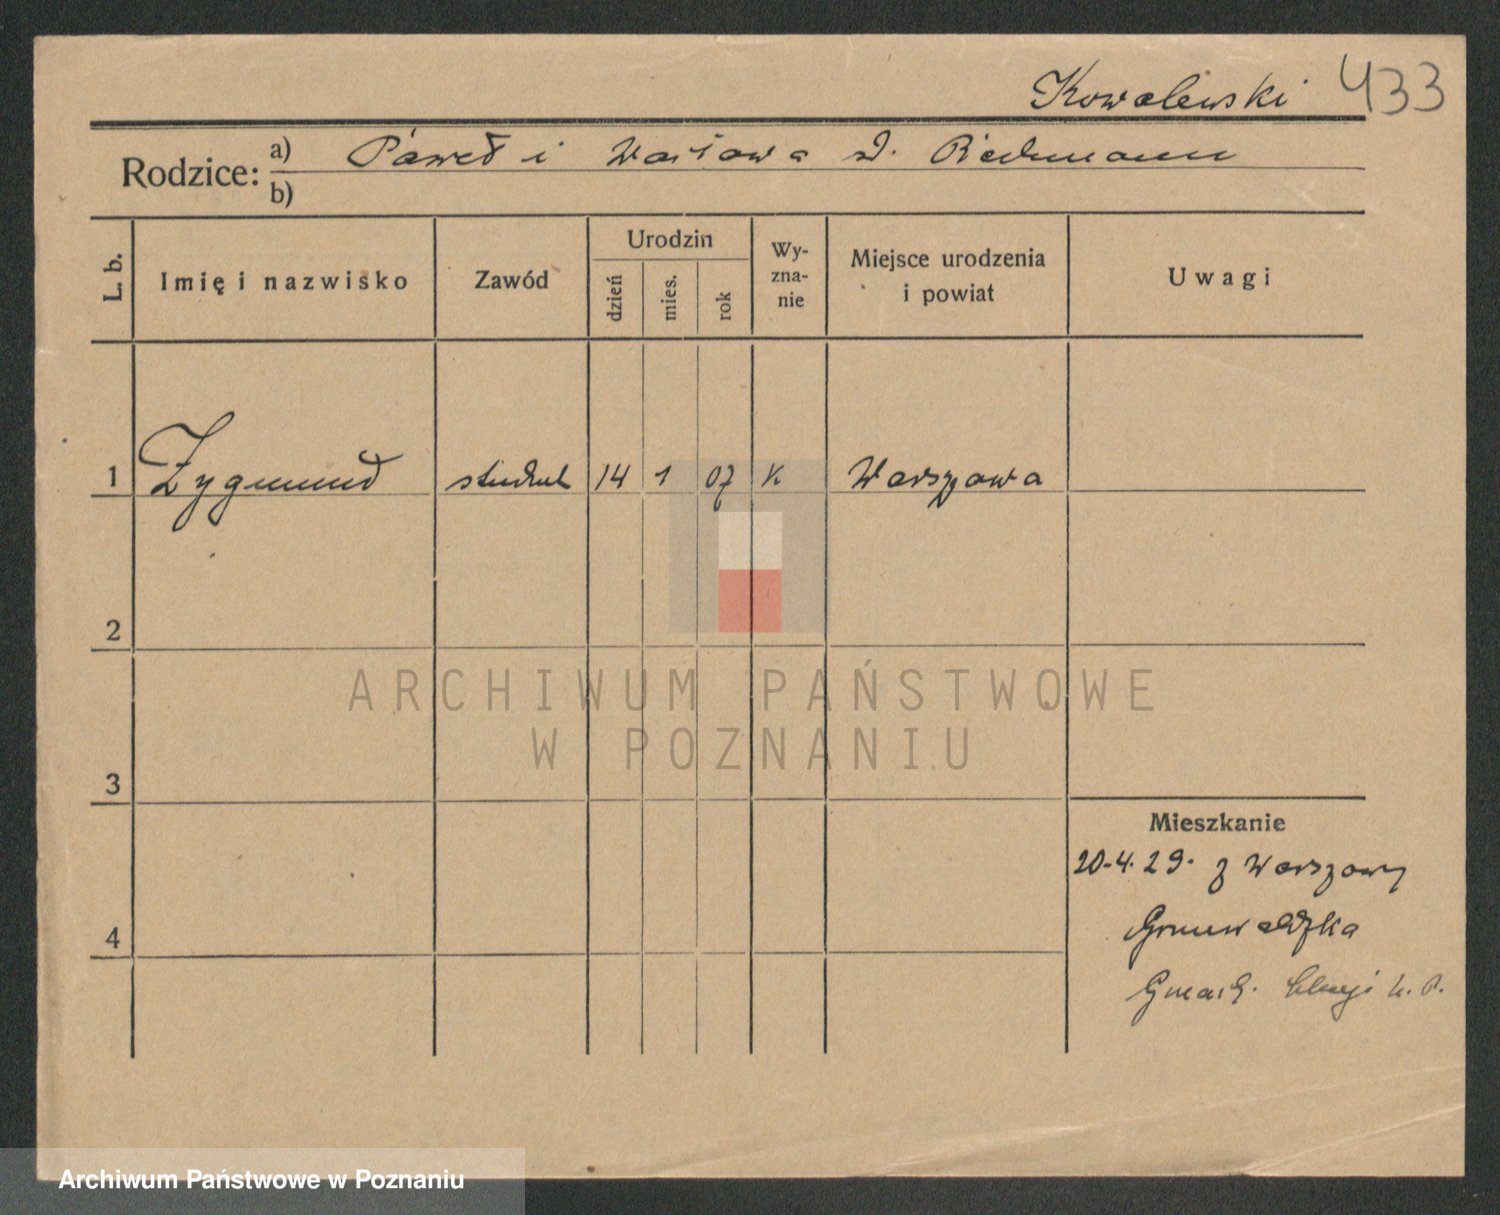 Kowalewski 433
Rodzice: a) Paweł i d.
b)
L. b.
Imię i nazwisko
Zawód
Urodzin
dzień
mies.
rok
Wy-
zna-
nie
Miejsce urodzenia
i powiat
Uwagi
1 Zygmund student 14 1 07 K Warszawa
2
3
4
Mieszkanie
20-4.29. z Warszawy
Grunwaldzka
Gmach.
ARCHIWUM PAŃSTWOWE
W POZNANIU
Archiwum Państwowe w Poznaniu